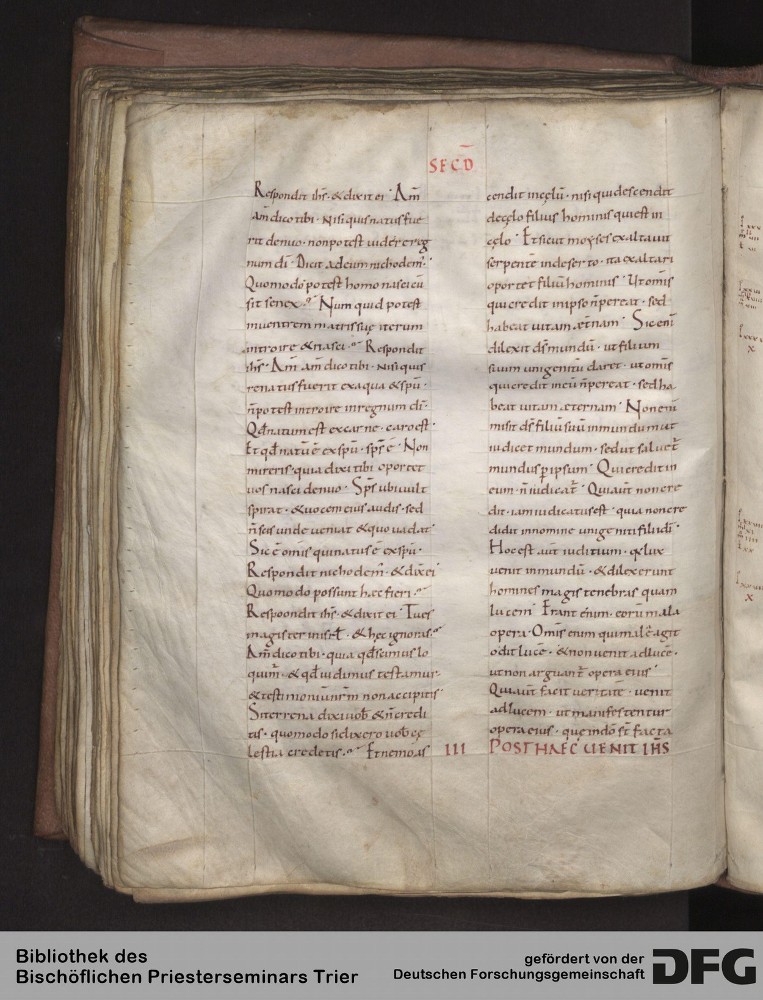 SECD
Respondit ihs · & dixit ei · Am̄
am̄ dico tibi · Nisi quis natus fue
rit denuo · non potest uidere reg
num dī · Dicit ad eum nichodem ·
Quomodo potest homo nasci cū
sit senex · Num quid potest
in uentrem matris suę iterum
introire & nasci · Respondit
ihs · Am̄ am̄ dico tibi · Nisi quis
renatus fuerit ex aqua & spū ·
n̄ potest introire in regnum dī ·
Qđ natum est ex carne · caro est ·
Et qđ natū ē ex spū · sps ē · Non
mireris quia dixi tibi oportet
uos nasci denuo · Sps ubi uult
spirat · & uocem eius audis · sed
n̄ scis unde ueniat & quo uadat ·
Sic ē omis qui natus ē ex spū ·
Respondit nichodem̄ · & dixei
Quomodo possunt hęc fieri ·
Respoondit ihs · & dixit ei · Tu es
magister in isrł · & hęc ignoras ·
Am̄ dico tibi · quia qđ scimus lo
quim̄ · & qđ uidimus testamur ·
& testimoniū nrm̄ non accipitis ·
Si terrena dixi uob̄ & n̄ credi
tis · quomodo si dixero uob̄ cę
lestia credetis · Et nemo as
cendit in cęlū · nisi qui descendit
de cęlo filius hominis qui est in
cęlo · Et sicut moyses exaltauit
serpentē in deserto · ita exaltari
oportet filiū hominis · Ut omis
qui credit in ipso n̄ pereat · sed
habeat uitam ætnam · Sic eni
dilexit ds mundū · ut filium
suum unigenitū daret · ut omis
qui credit in eū n̄ pereat · sed ha
beat uitam æternam · Non eni
misit ds filiū suū in mundum ut
iudicet mundum · sed ut saluet̄
mundus p ipsum · Qui credit in
eum · n̄ iudicat̄ · Qui aut̄ non cre
dit · iam iudicatus est · quia non cre
didit in nomine unigeniti filii dī ·
Hoc est aut̄ iuditium · q̨ lux
uenit in mundū · & dilexerunt
homines magis tenebras quam
lucem · Erant enim · eorū mala
opera · Omis enim qui male agit
odit lucē · & non uenit ad lucē ·
ut non arguant̄ opera eius ·
Qui aut̄ facit ueritatē · uenit
ad lucem · ut manifestentur
opera eius · que in dō st̄ facta
III POST HAEC UENIT IHS
Bibliothek des
Bischöflichen Priesterseminars Trier
gefördert von der
Deutschen Forschungsgemeinschaft DFG